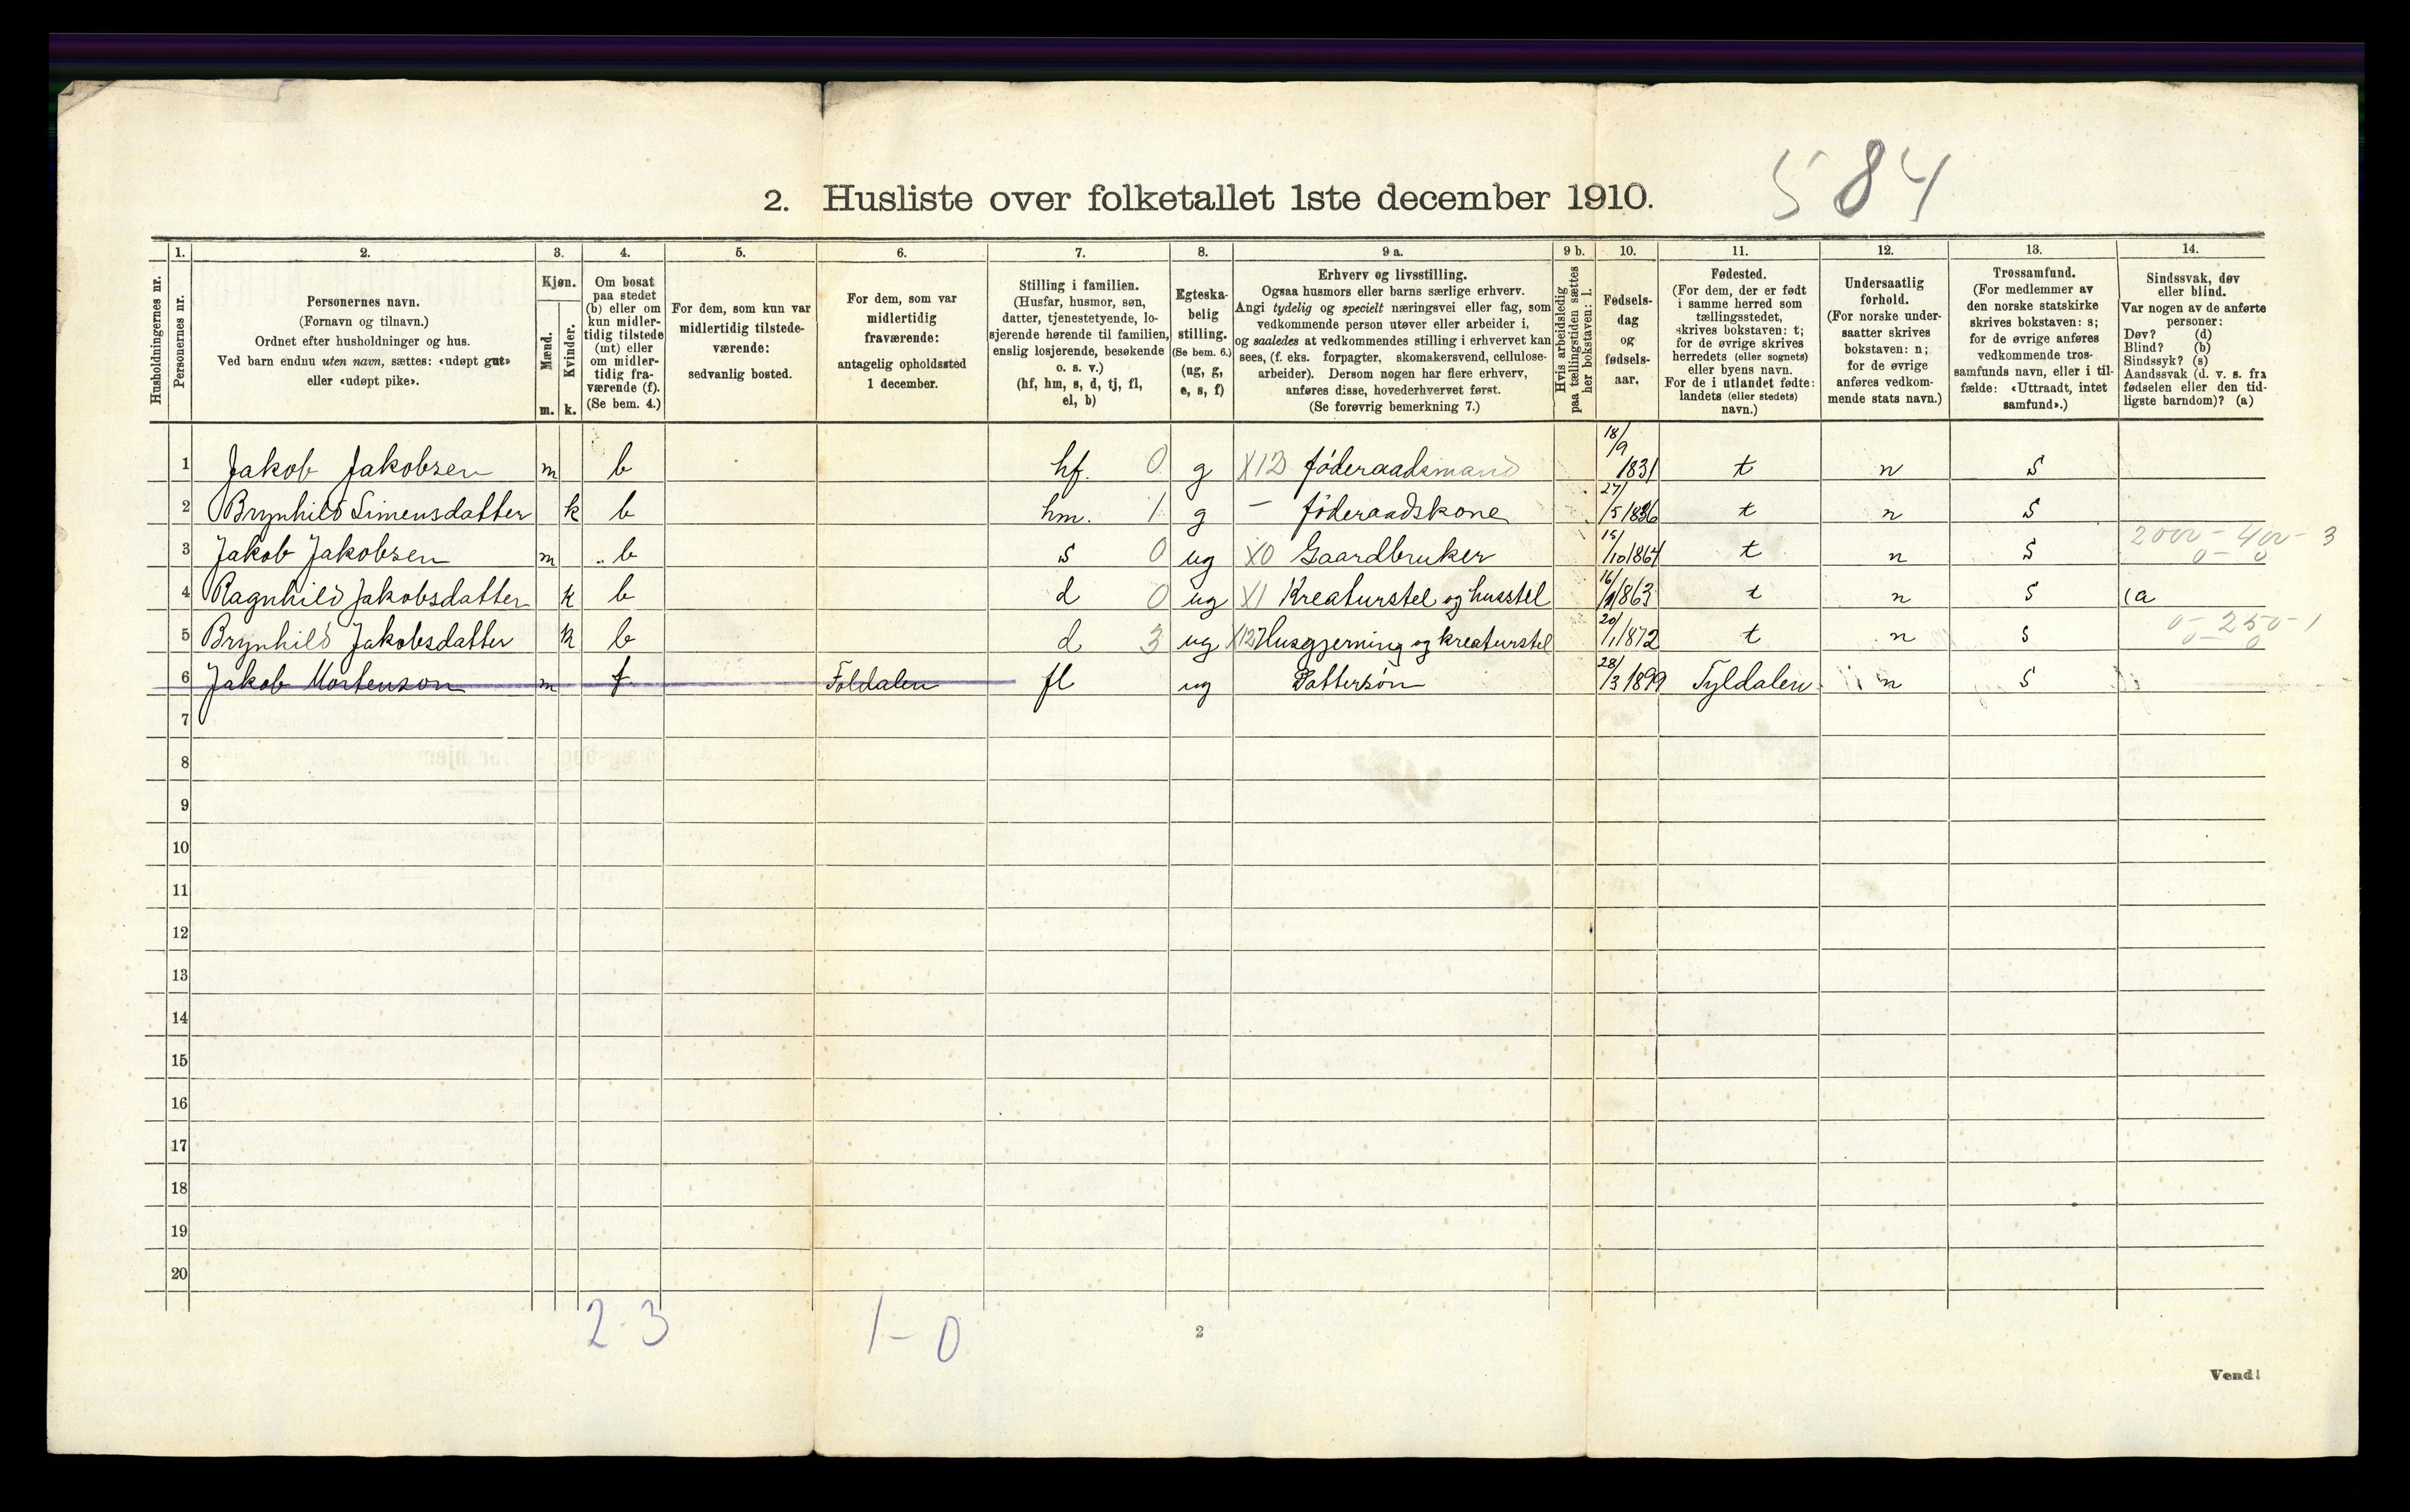 584
2. Husliste over folketallet 1ste december 1910.
Husholdningernes nr.
1. Personernes nr.
2. Personernes navn.
(Fornavn og tilnavn.)
Ordnet efter husholdninger og hus.
Ved barn endnu uten navn, sættes: «udøpt gut»
eller «udøpt pike».
3. Kjøn.
Mænd. m.
Kvinder. k.
4. Om bosat
paa stedet
(b) eller om
kun midler-
tidig tilstede
(mt) eller
om midler-
tidig fra-
værende (f).
(Se bem. 4.)
5. For dem, som kun var
midlertidig tilstede-
værende:
sedvanlig bosted.
6. For dem, som var
midlertidig
fraværende:
antagelig opholdssted
1 december.
7. Stilling i familien.
(Husfar, husmor, søn,
datter, tjenestetyende, lo-
sjerende hørende til familien,
enslig losjerende, besøkende
o. s. v.)
(hf, hm, s, d, tj, fl,
el, b)
8. Egteska-
belig
stilling.
(Se bem. 6.)
(ug, g,
e, s, f)
9 a. Erhverv og livsstilling.
Ogsaa husmors eller barns særlige erhverv.
Angi tydelig og specielt næringsvei eller fag, som
vedkommende person utøver eller arbeider i,
og saaledes at vedkommendes stilling i erhvervet kan
sees, (f. eks. forpagter, skomakersvend, cellulose-
arbeider). Dersom nogen har flere erhverv,
anføres disse, hovederhvervet først.
(Se forøvrig bemerkning 7.)
9 b. Hvis arbeidsledig
paa tællingstiden sættes
her bokstaven: l.
10. Fødsels-
dag
og
fødsels-
aar.
11. Fødested.
(For dem, der er født
i samme herred som
tællingsstedet,
skrives bokstaven: t;
for de øvrige skrives
herredets (eller sognets)
eller byens navn.
For de i utlandet fødte:
landets (eller stedets)
navn.)
12. Undersaatlig
forhold.
(For norske under-
saatter skrives
bokstaven: n;
for de øvrige
anføres vedkom-
mende stats navn.)
13. Trossamfund.
(For medlemmer av
den norske statskirke
skrives bokstaven: s;
for de øvrige anføres
vedkommende tros-
samfunds navn, eller i til-
fælde: «Uttraadt, intet
samfund».)
14. Sindssvak, døv
eller blind.
Var nogen av de anførte
personer:
Døv? (d)
Blind? (b)
Sindssyk? (s)
Aandssvak (d. v. s. fra
fødselen eller den tid-
ligste barndom)? (a)
1 Jakob Jakobsen m b hf. 0 g X12 føderaadsmand 18/9 1831 t n s
2 Brynhild Simensdatter k b hm. 1 g – føderaadskone 27/5 1836 t n s
3 Jakob Jakobsen m b s 0 ug X0 Gaardbruker 15/10 1864 t n s 2000 – 400 – 3 0 – 0
4 Ragnhild Jakobsdatter k b d 0 ug X1 Kreaturstel og husstel 16/1 1863 t n s (a
5 Brynhild Jakobsdatter k b d 3 ug X12 Husgjerning og kreaturstel 20/1 1872 t n s 0 – 250 – 1 0 – 0
6 Jakob Mortenson m f. Foldalen fl ug Dattersøn 28/3 1899 Tyldalen n s
7
8
9
10
11
12
13
14
15
16
17
18
19
20
2 3 1 – 0
2
Vend!